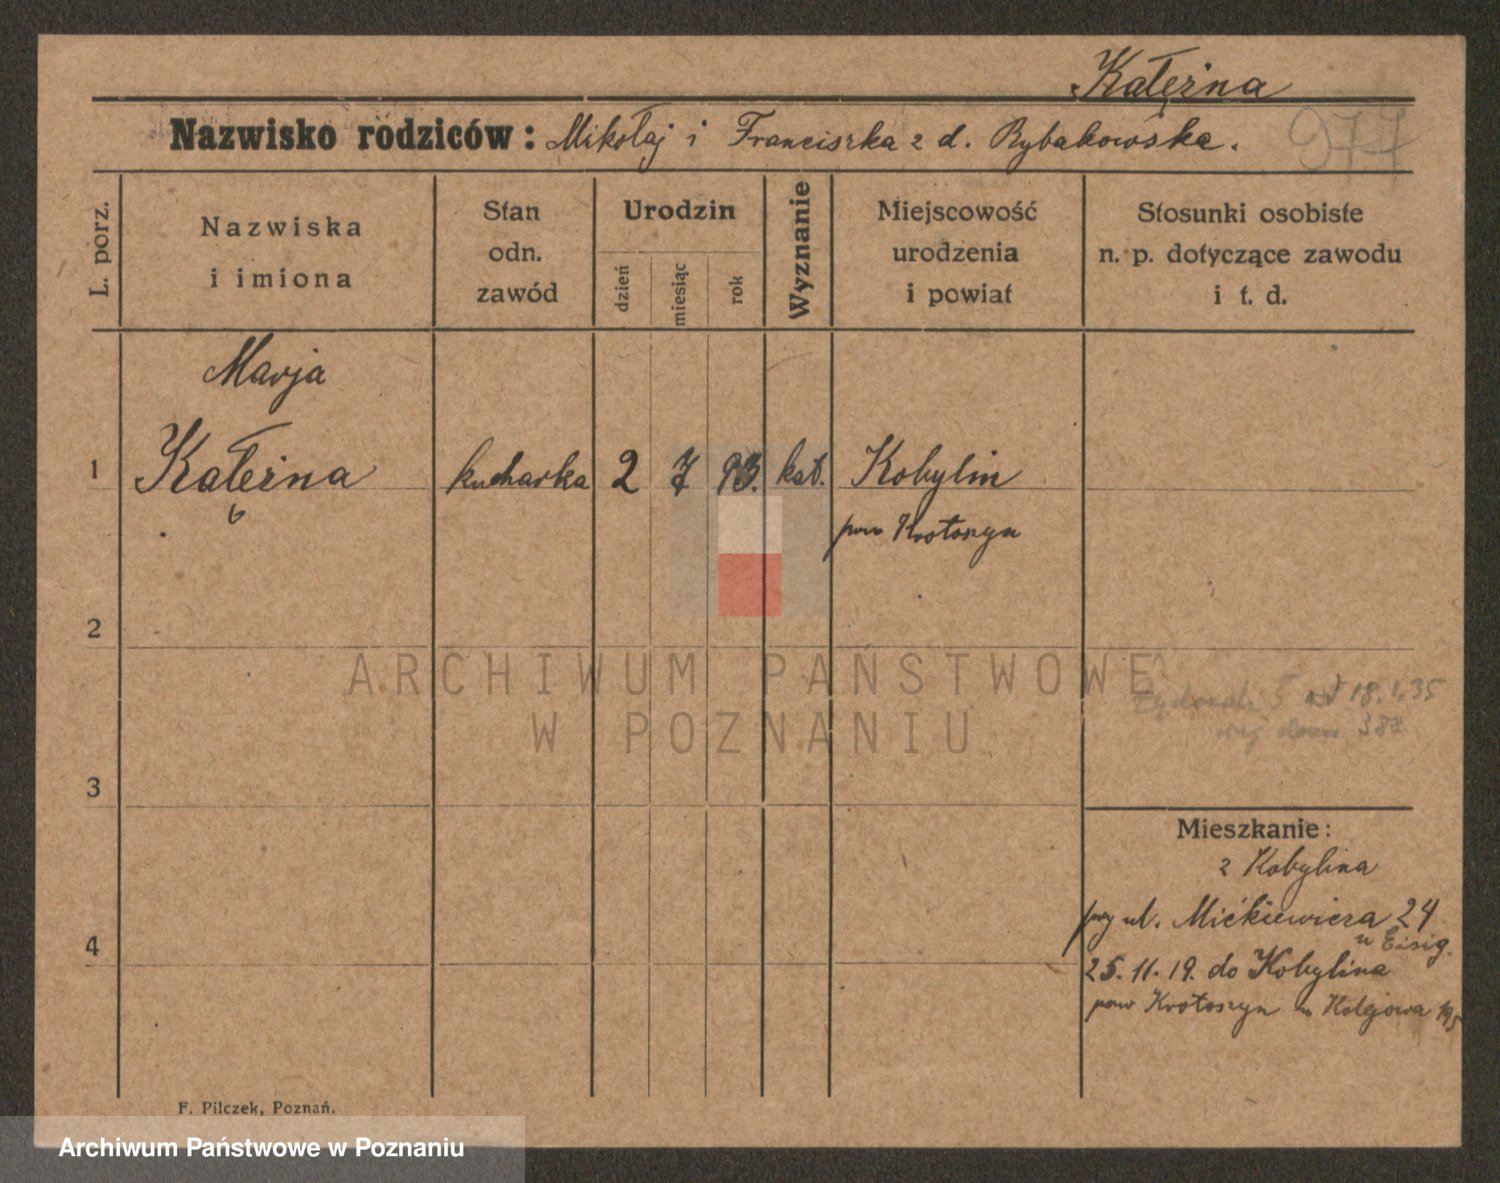 Kałężna
Nazwisko rodziców: Mikołaj i Franciszka z d. Rybakowska.
977
L. porz.
Nazwiska
i imiona
Stan
odn.
zawód
Urodzin
dzień
miesiąc
rok
Wyznanie
Miejscowość
urodzenia
i powiat
Stosunki osobiste
n. p. dotyczące zawodu
i t. d.
Marja
1 Kałężna kucharka 2 7 93. kat. Kobylin
pow Krotoszyn
2
ARCHIWUM PAŃSTWOWE
W POZNANIU
5 18.1.35
3
Mieszkanie:
z Kobylina
przy ul. Mickiewicza 24
u Eisig.
4
25.11.19. do Kobylina
pow Krotoszyn Kolejowa
F. Pilczek, Poznań.
Archiwum Państwowe w Poznaniu